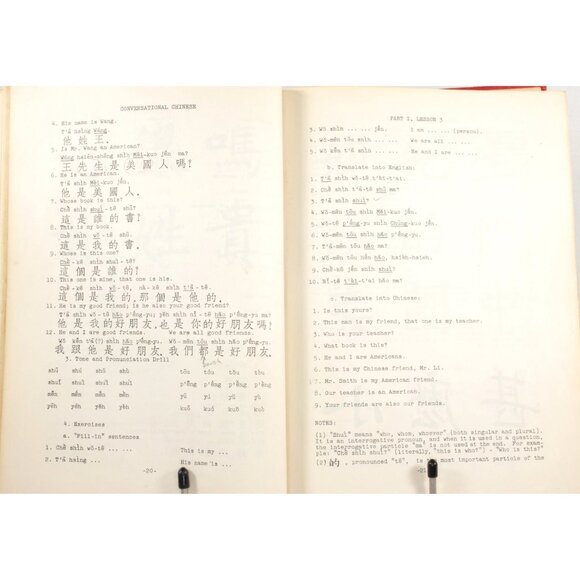 CONVERSATIONAL CHINESE
4. His name is Wang.
T'ā hsìng Wáng.
他姓王.
5. Is Mr. Wang an American?
Wáng hsiēn-shēng shìh Měi-kuo jén ma?
王先生是美國人嗎?
6. He is an American.
T'ā shìh Měi-kuo jén.
他是美國人.
7. Whose book is this?
Chè shìh shuí-tē shū?
這是誰的書?
8. This is my book.
Chè shìh wǒ-tē shū.
這是我的書.
9. Whose is this one?
Chè-kē shìh shuí-tē?
這個是誰的?
10. This one is mine, that one is his.
Chè-kē shìh wǒ-tē, nà-kē shìh t'ā-tē.
這個是我的,那個是他的.
11. He is my good friend; is he also your good friend?
T'ā shìh wǒ-tē hǎo p'éng-yu; yěh shìh nǐ-tē hǎo p'éng-yu ma?
他是我的好朋友,也是你的好朋友嗎?
12. He and I are good friends. We are all good friends.
Wǒ kēn t'ā shìh hǎo p'éng-yu. Wǒ-mēn tōu shìh hǎo p'éng-yu.
我跟他是好朋友.我們都是好朋友.
3. Tone and Pronunciation Drill
shū shú shǔ shù tōu tóu tǒu tòu
shuī shuí shuǐ shuì p'ēng p'éng p'ěng p'èng
mēn mén měn mèn yū yú yǔ yù
yēh yéh yěh yèh kuō kuó kuǒ kuò
4. Exercises
a. "Fill-in" sentences
1. Chè shìh wǒ-tē ... ... This is my ...
2. T'ā hsìng ... His name is ...
-20-
PART I, LESSON 3
3. Wǒ shìh ... ... jén. I am ... ... (person).
4. Wǒ-mēn tōu shìh ... ... We are all ... ...
5. Wǒ kēn t'ā shìh ... ... He and I are ... ...
b. Translate into English:
1. T'ā shìh wǒ-tē t'ài-t'ai.
2. Chè shìh t'ā-tē shū ma?
3. T'ā shìh shuí?
4. Wǒ-mēn tōu shìh Měi-kuo jén.
5. Wǒ-mēn tōu shìh Chūng-kuo jén.
6. Wǒ-mēn tōu shìh hǎo p'éng-yu.
7. T'ā-mēn tōu hǎo ma?
8. Wǒ-mēn tōu hǎo, hsièh-hsieh.
9. Chè-kē jén shìh shuí?
10. Nǐ-tē t'ài-t'ai hǎo ma?
c. Translate into Chinese:
1. Is this yours?
2. This man is my friend, that one is my teacher.
3. Who is your teacher?
4. What book is this?
5. He and I are Americans.
6. This is my Chinese friend, Mr. Li.
7. Mr. Smith is my American friend.
8. Our teacher is an American.
9. Your friends are also our friends.
NOTES:
(1) "Shuí" means "who, whom, whoever" (both singular and plural).
It is an interrogative pronoun, and when it is used in a question,
the interrogative particle "ma" is not used at the end. For exam-
ple: "Chè shìh shuí?" (literally, "this is who?") - "Who is this?"
(2) 的, pronounced "tē", is most important particle of the